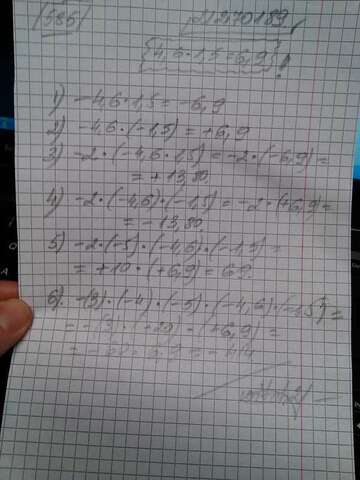 585
21270189
{4,6·1,5=6,9}!
1) -4,6·1,5=-6,9
2) -4,6·(-1,5)=+6,9
3) -2·(-4,6·1,5)=-2·(-6,9)=
=+13,80.
4) -2·(-4,6)·(-1,5)=-2·(+6,9)=
=-13,80.
5) -2·(-5)·(-4,6)·(-1,5)=
=+10·(+6,9)=69.
6) -(3)·(-4)·(-5)·(-4,6)·(-1,5)=
=-(3)·(+20)·(+6,9)=
=-60·6,9=-414